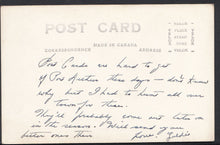 POST CARD
CORRESPONDENCE MADE IN CANADA ADDRESS
PLACE
STAMP
HERE
Post Cards are hard to get
of Port Renfrew these days - don't know
why but I had to hunt all over
town for these.
They'll probably come out later on
in the season. We'll send you
better ones then. Love,